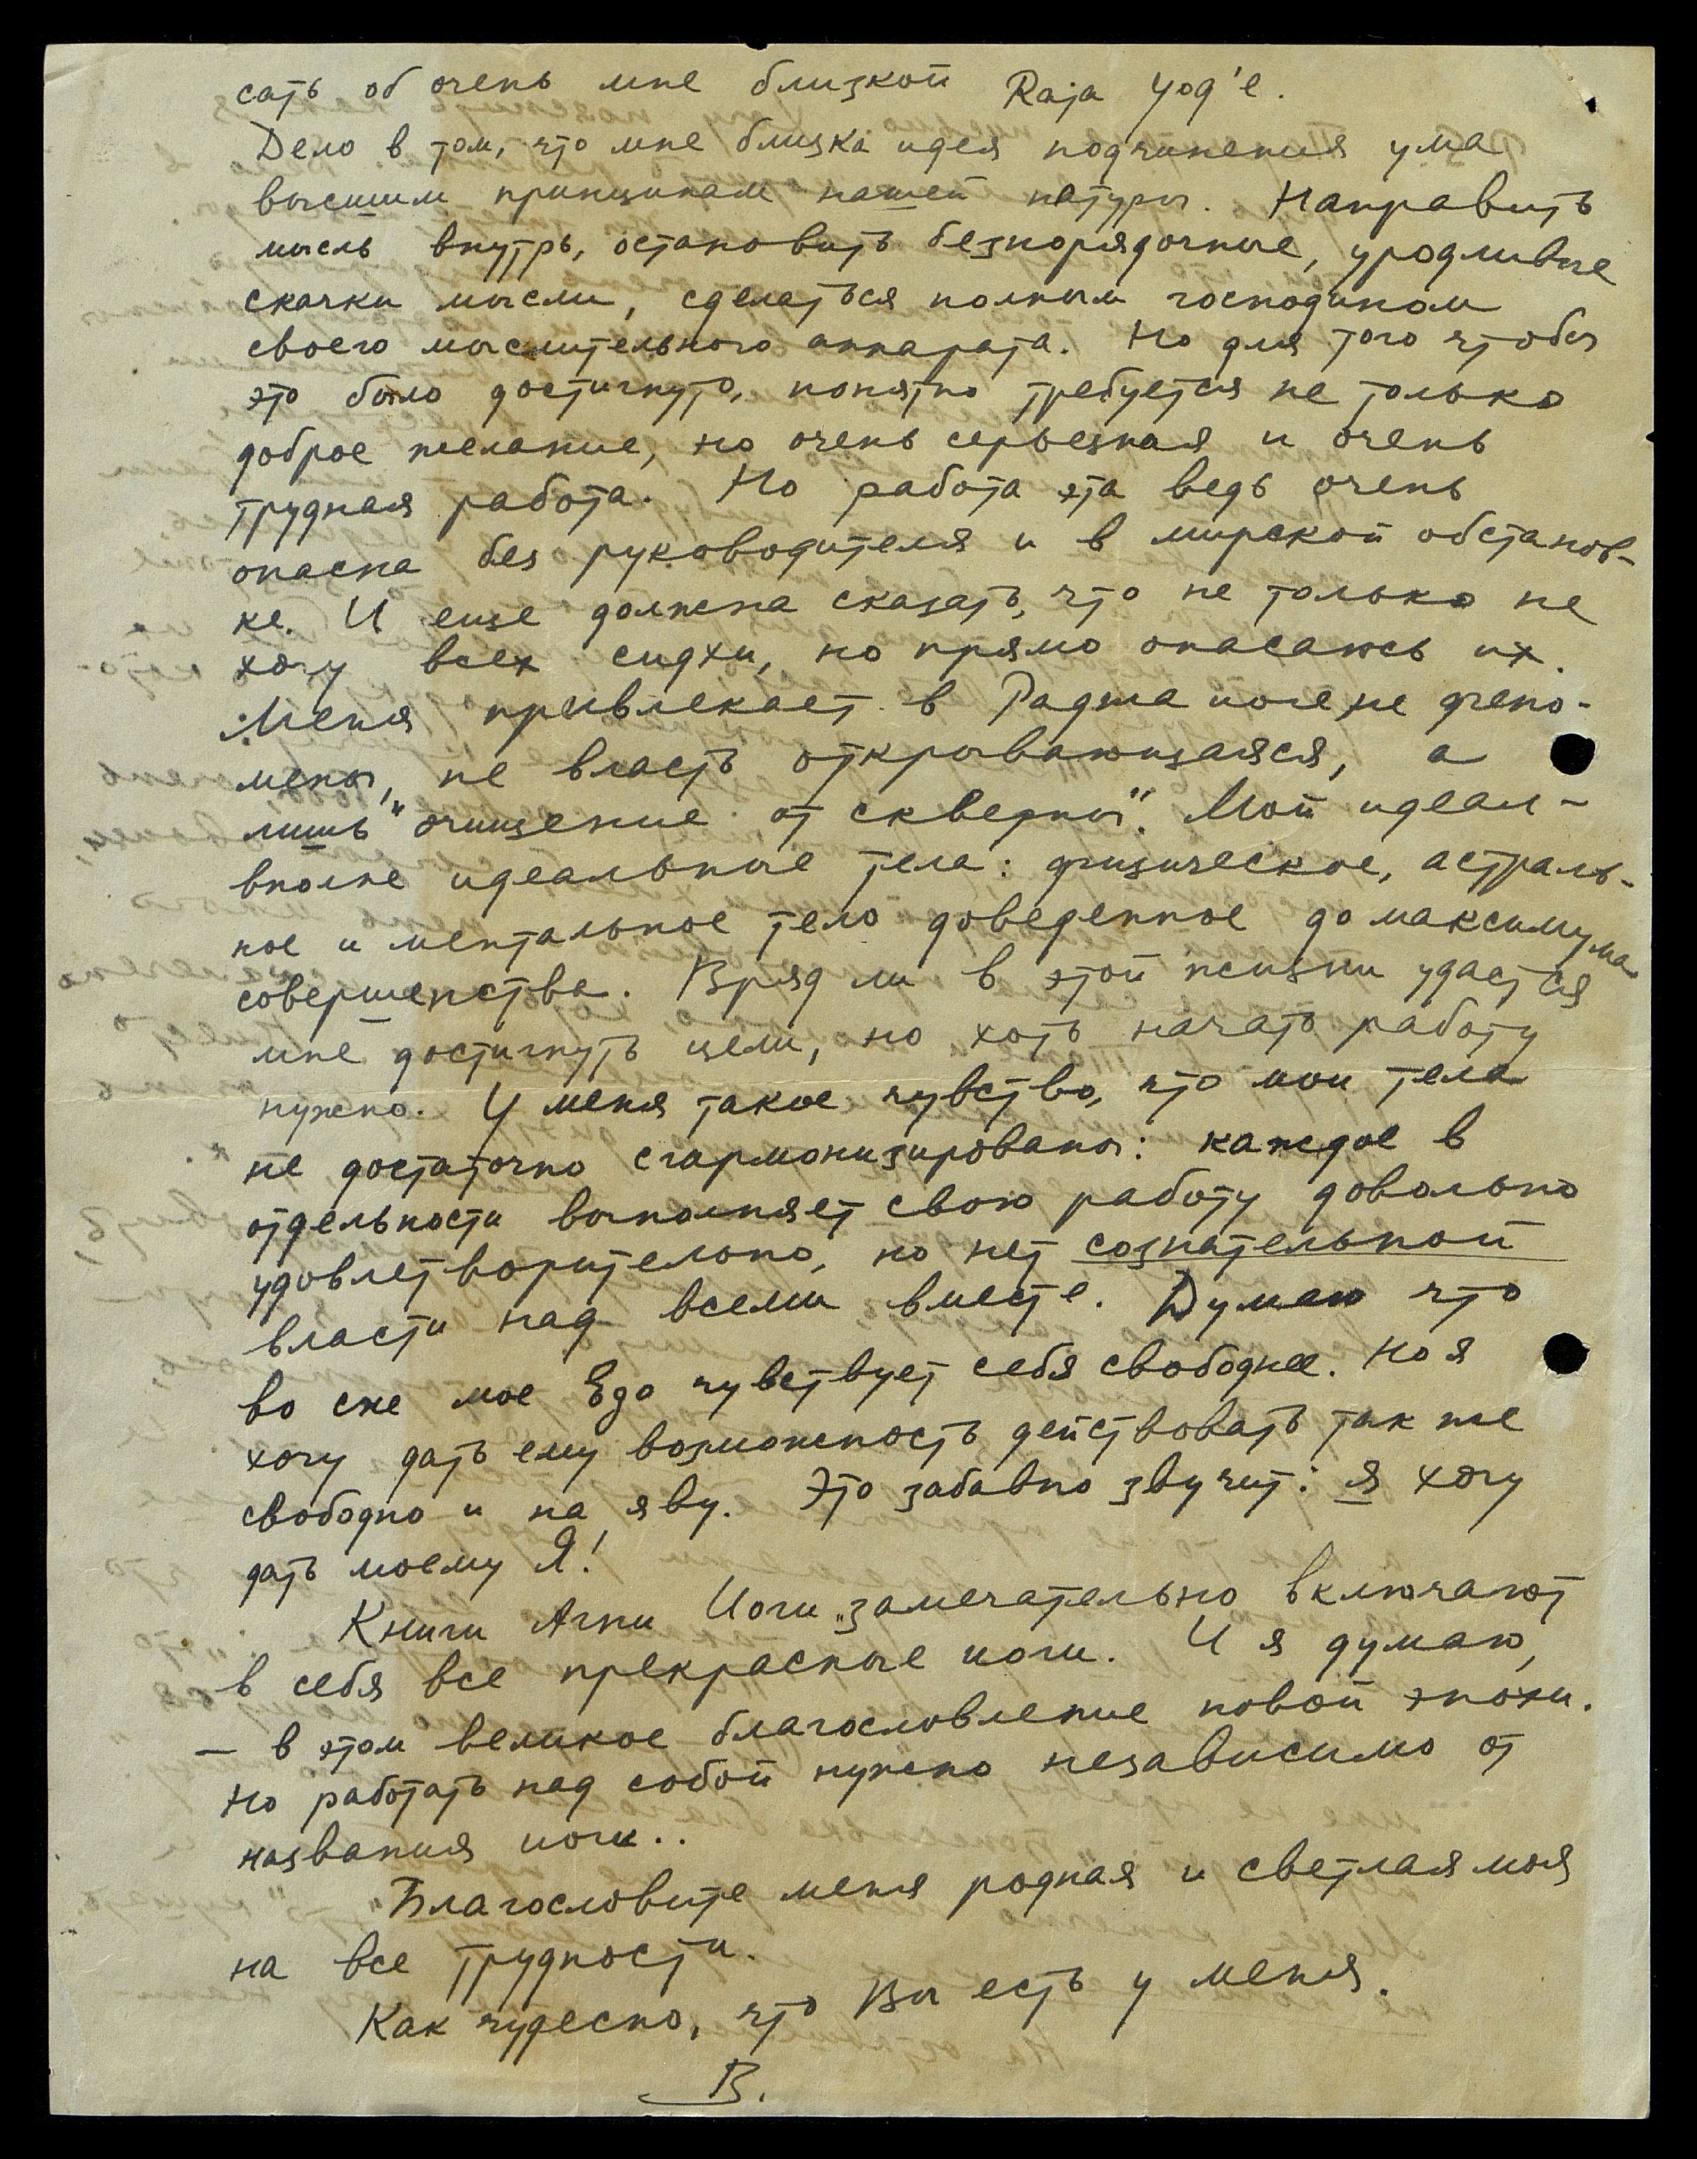 сать об очень мне близкой Raja Yog'е.
Дело в том, что мне близка идея подчинения ума
высшим принципам нашей натуры. Направить
мысль внутрь, остановить безпорядочные, уродливые
скачки мысли, сделаться полным господином
своего мыслительного аппарата. Но для того чтобы
это было достигнуто, понятно требуется не только
доброе желание, но очень серьезная и очень
трудная работа. Но работа эта ведь очень
опасна без руководителя и в мирской обстанов-
ке. И еще должна сказать, что не только не
хочу всех сидхи, но прямо опасаюсь их.
Меня привлекает в Раджа иоге, не фено-
мены, не власть открывающаяся, а
лишь "очищение от скверны". Мой идеал -
вполне идеальные тела: физическое, астраль-
ное и ментальное тело доведенное до максимума
совершенства. Вряд ли в этой жизни удастся
мне достигнуть цели, но хоть начать работу
нужно. У меня такое чувство, что мои тела
не достаточно сгармонизированы: каждое в
отдельности выполняет свою работу довольно
удовлетворительно, но нет сознательной
власти над всеми вместе. Думаю что
во сне мое Эго чувствует себя свободнее. Но я
хочу дать ему возможность действовать так же
свободно и на яву. Это забавно звучит: я хочу
дать моему Я!
Книги Агни Иоги замечательно включают
в себя все прекрасные иоги. И я думаю,
— в этом великое благословление новой эпохи.
Но работать над собой нужно независимо от
названия иоги..
Благословите меня родная и светлая моя
на все трудности.
Как чудесно, что Вы есть у меня.
В.